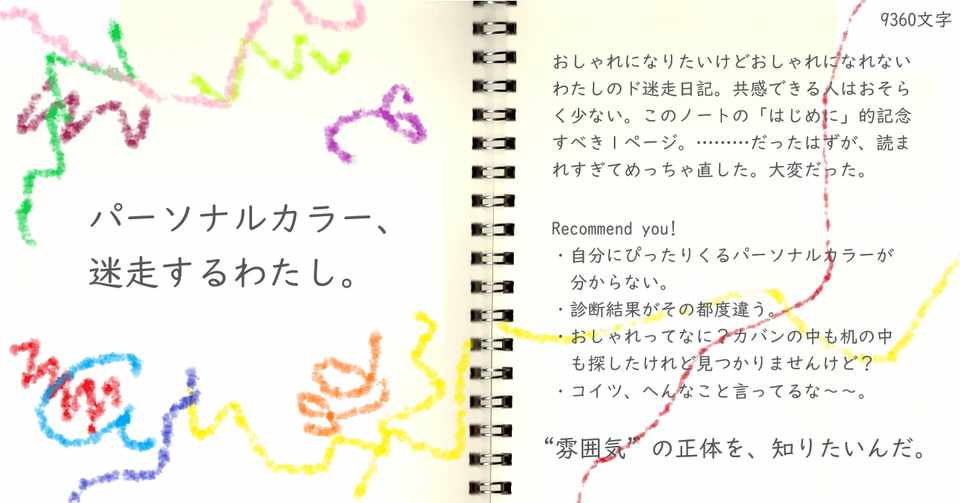 9360文字
パーソナルカラー、
迷走するわたし。
おしゃれになりたいけどおしゃれになれない
わたしのド迷走日記。共感できる人はおそら
く少ない。このノートの「はじめに」的記念
すべき1ページ。………だったはずが、読ま
れすぎてめっちゃ直した。大変だった。
Recommend you!
・自分にぴったりくるパーソナルカラーが
分からない。
・診断結果がその都度違う。
・おしゃれってなに？カバンの中も机の中
も探したけれど見つかりませんけど？
・コイツ、へんなこと言ってるな～～。
“雰囲気”の正体を、知りたいんだ。